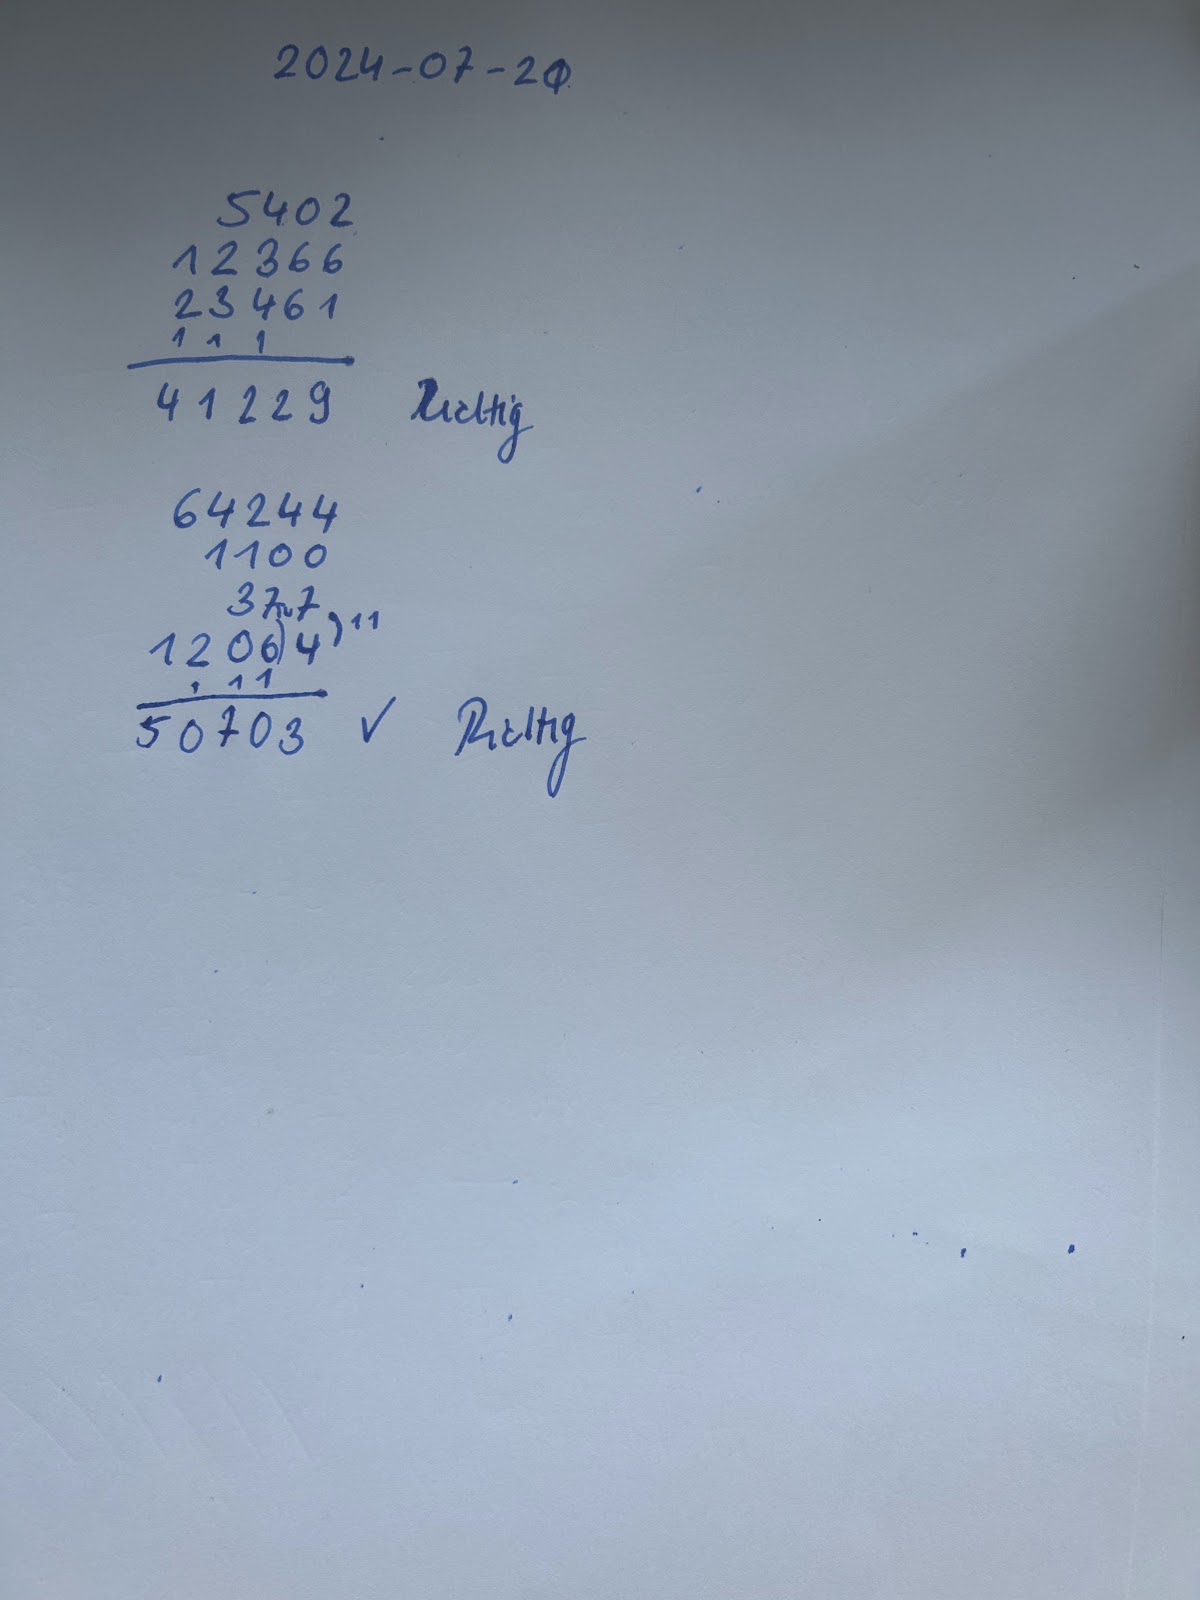 2024-07-20
5402
12366
23461
1 1 1
41229 Richtig
64244
1100
377
12064 ) 11
1 1 1
50703 ✓ Richtig